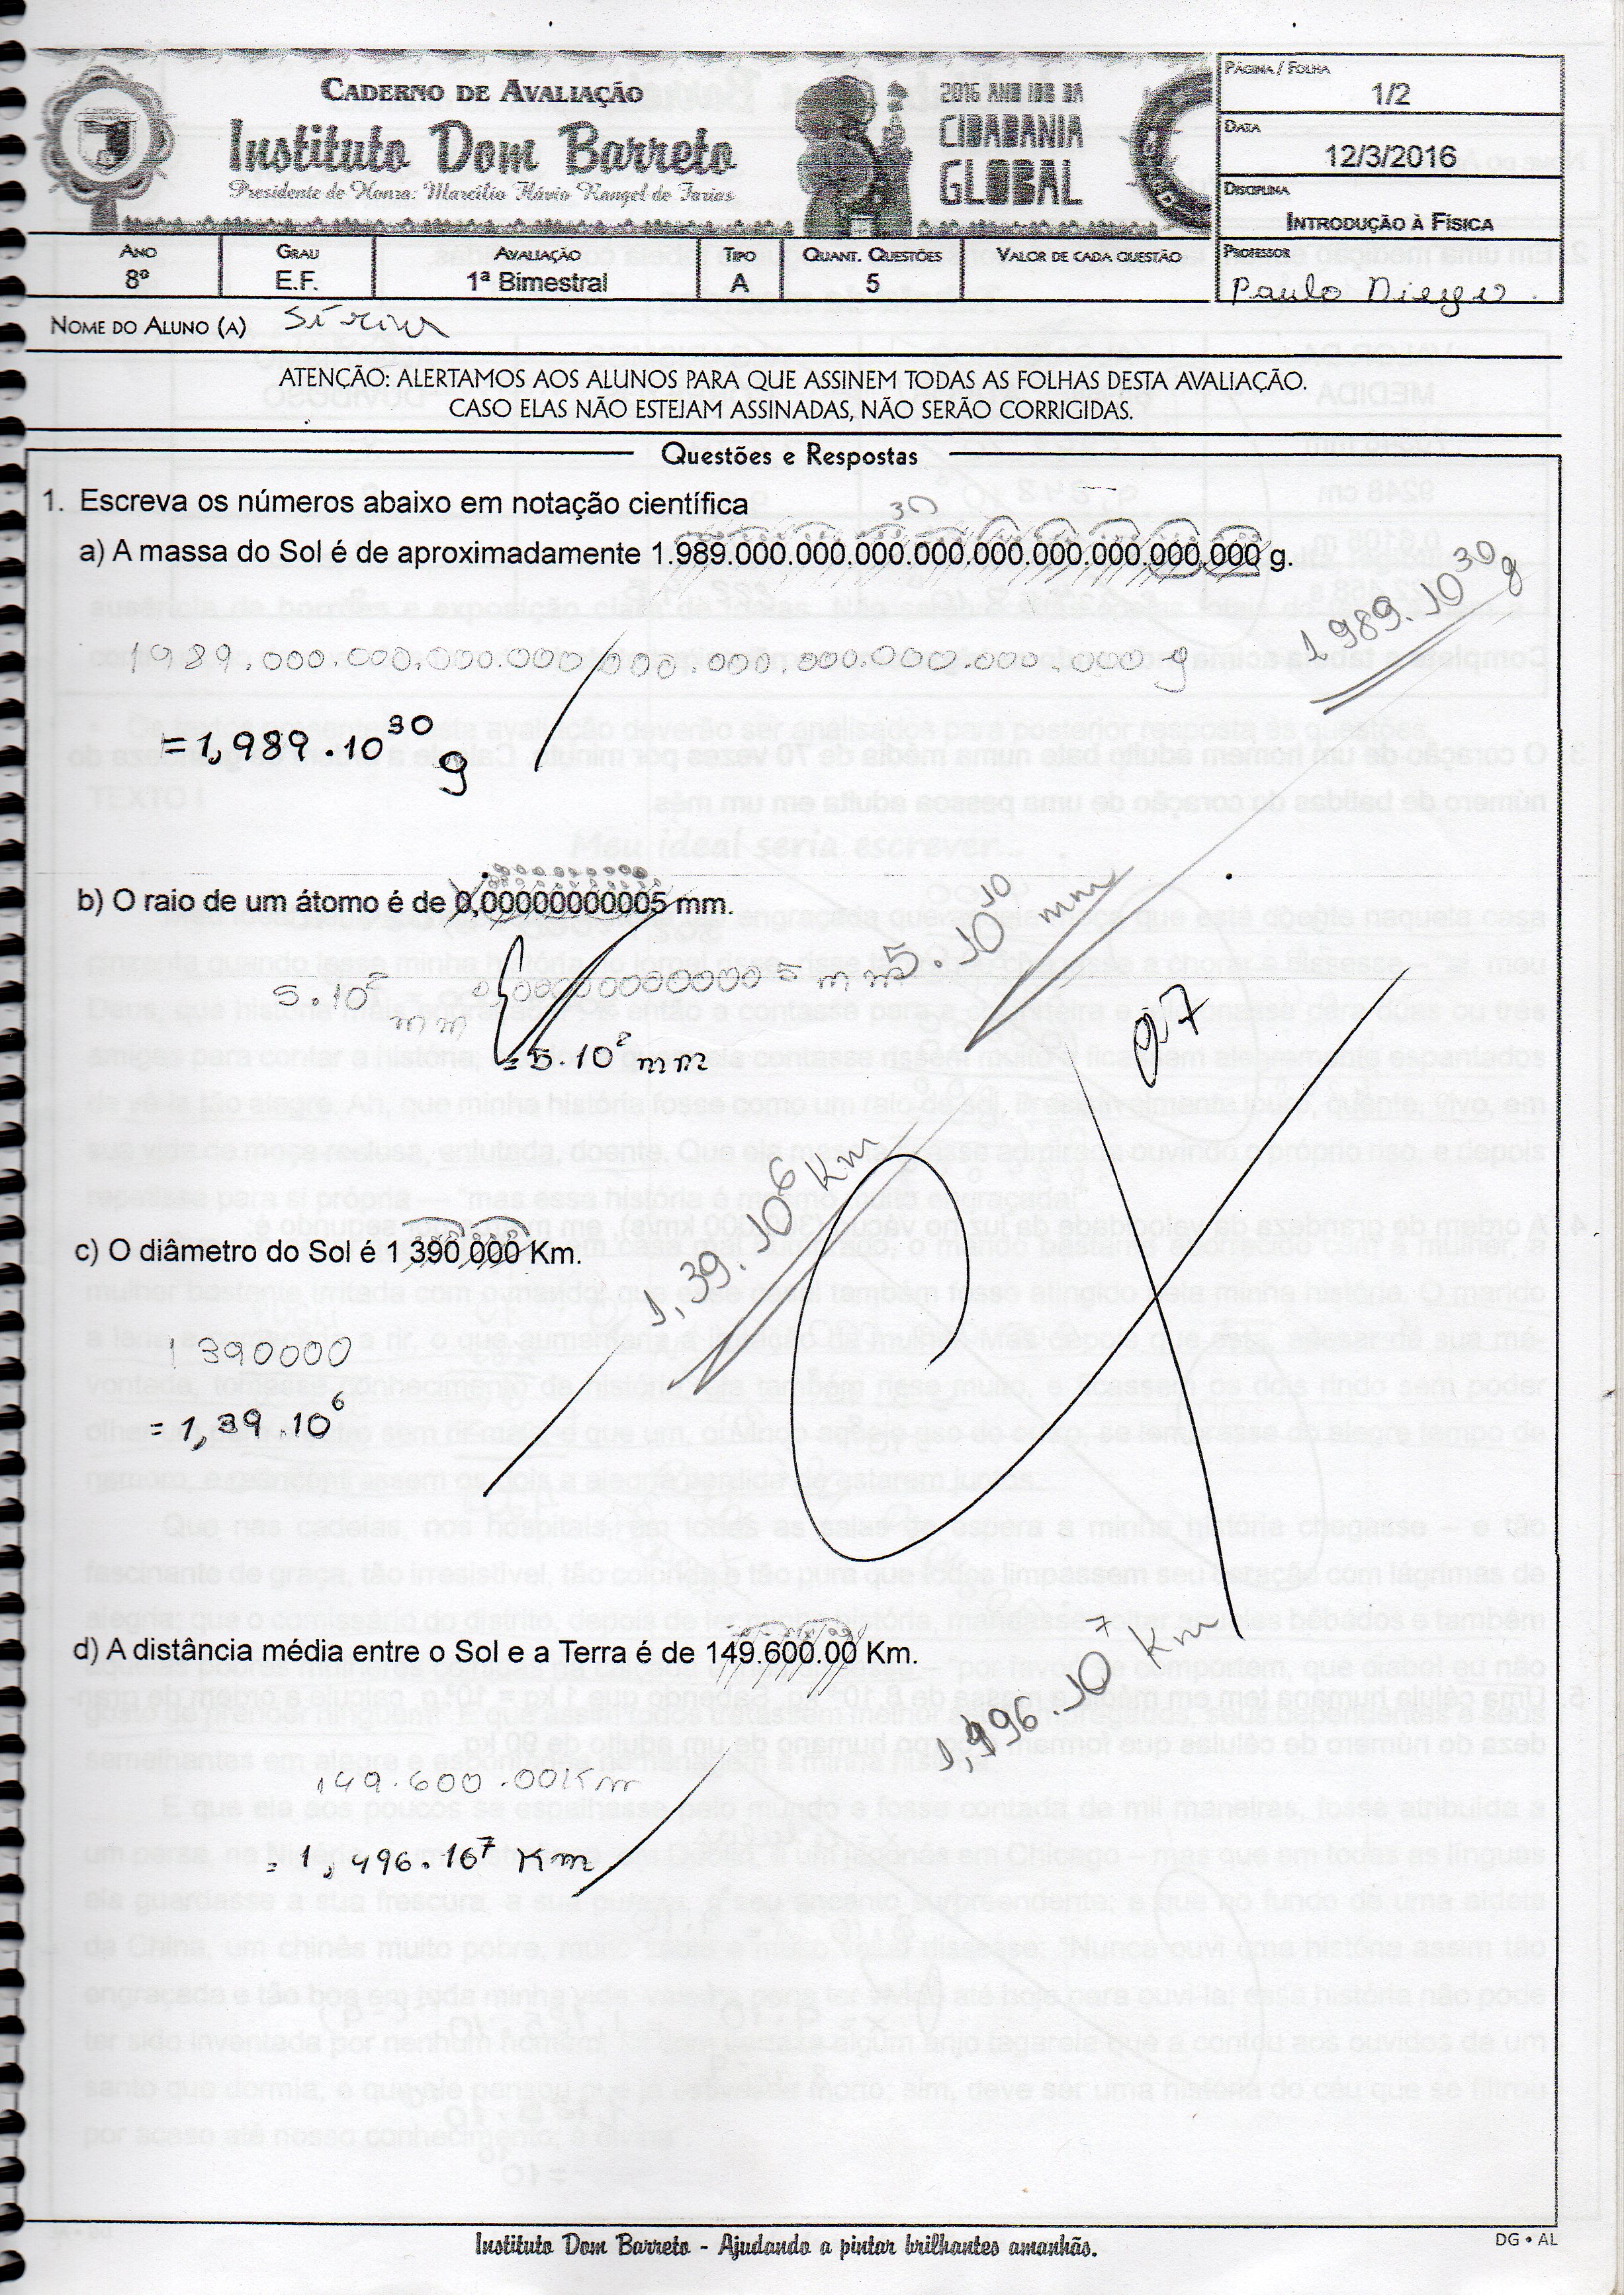 CADERNO DE AVALIAÇÃO
Instituto Dom Barreto
Presidente de Honra: Marcílio Flávio Rangel de Farias
2016 ANO IDB DA
CIDADANIA
GLOBAL
PÁGINA / FOLHA
1/2
DATA
12/3/2016
DISCIPLINA
INTRODUÇÃO À FÍSICA
PROFESSOR
Paulo
ANO
8º
GRAU
E.F.
AVALIAÇÃO
1ª Bimestral
TIPO
A
QUANT. QUESTÕES
5
VALOR DE CADA QUESTÃO
NOME DO ALUNO (A)
ATENÇÃO: ALERTAMOS AOS ALUNOS PARA QUE ASSINEM TODAS AS FOLHAS DESTA AVALIAÇÃO.
CASO ELAS NÃO ESTEJAM ASSINADAS, NÃO SERÃO CORRIGIDAS.
Questões e Respostas
1. Escreva os números abaixo em notação científica
30
a) A massa do Sol é de aproximadamente 1.989.000.000.000.000.000.000.000.000.000 g.
1,989.10³⁰ g
= 1,989.10³⁰ g
b) O raio de um átomo é de 0,00000000005 mm.
5.10¹⁰ mm
5.10² mm
= 5.10² mm
0,7
c) O diâmetro do Sol é 1 390 000 Km.
1,39.10⁶ Km
1 390000
= 1,39.10⁶
d) A distância média entre o Sol e a Terra é de 149.600.00 Km.
1,496.10⁷ Km
149.600.00Km
= 1,496.10⁷ Km
Instituto Dom Barreto - Ajudando a pintar brilhantes amanhãs.
DG • AL